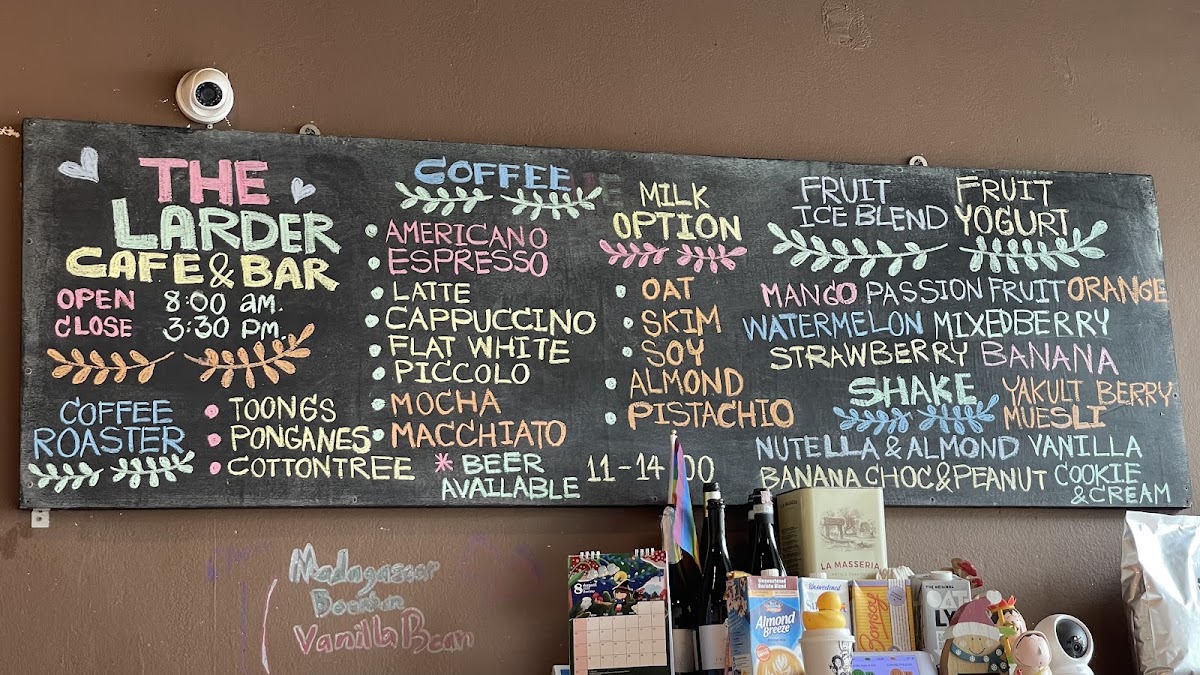 THE
LARDER
CAFE & BAR
OPEN 8:00 am.
CLOSE 3:30 pm.
COFFEE
ROASTER
TOONGS
PONGANES
COTTONTREE
COFFEE
AMERICANO
ESPRESSO
LATTE
CAPPUCCINO
FLAT WHITE
PICCOLO
MOCHA
MACCHIATO
* BEER
AVAILABLE
11-14 00
MILK
OPTION
OAT
SKIM
SOY
ALMOND
PISTACHIO
FRUIT
ICE BLEND
FRUIT
YOGURT
MANGO PASSION FRUIT ORANGE
WATERMELON MIXEDBERRY
STRAWBERRY BANANA
SHAKE
YAKULT BERRY
MUESLI
NUTELLA & ALMOND VANILLA
BANANA CHOC & PEANUT COOKIE
& CREAM
Madagascar
Bourbon
Vanilla Bean
LA MASSERIA
Almond
Breeze
Bonsoy
OAT
LY